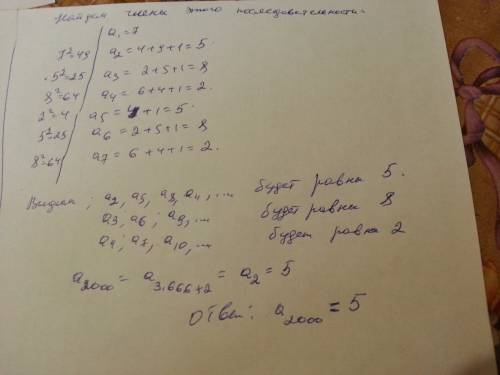 Найдем члены этого последовательности.
a₁ = 7
7²=49 a₂ = 4+9+1 = 5.
5²=25 a₃ = 2+5+1 = 8
8²=64 a₄ = 6+4+1 = 2.
2²=4 a₅ = 4+1 = 5.
5²=25 a₆ = 2+5+1 = 8
8²=64 a₇ = 6+4+1 = 2.
Видим; a₂, a₅, a₈, a₁₁, ... будет равны 5.
a₃, a₆, a₉, ... будет равны 8
a₄, a₇, a₁₀, ... будет равна 2
a₂₀₀₀ = a₃.₆₆₆₊₂ = a₂ = 5
Ответ: a₂₀₀₀ = 5